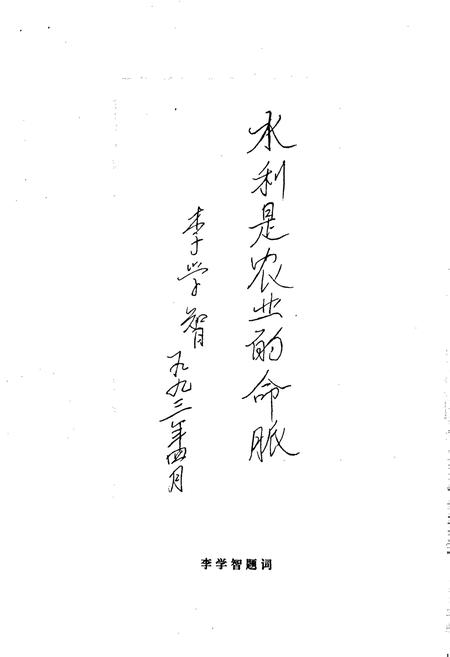 水利是农业的命脉
李学智
一九九三年四月
李学智题词